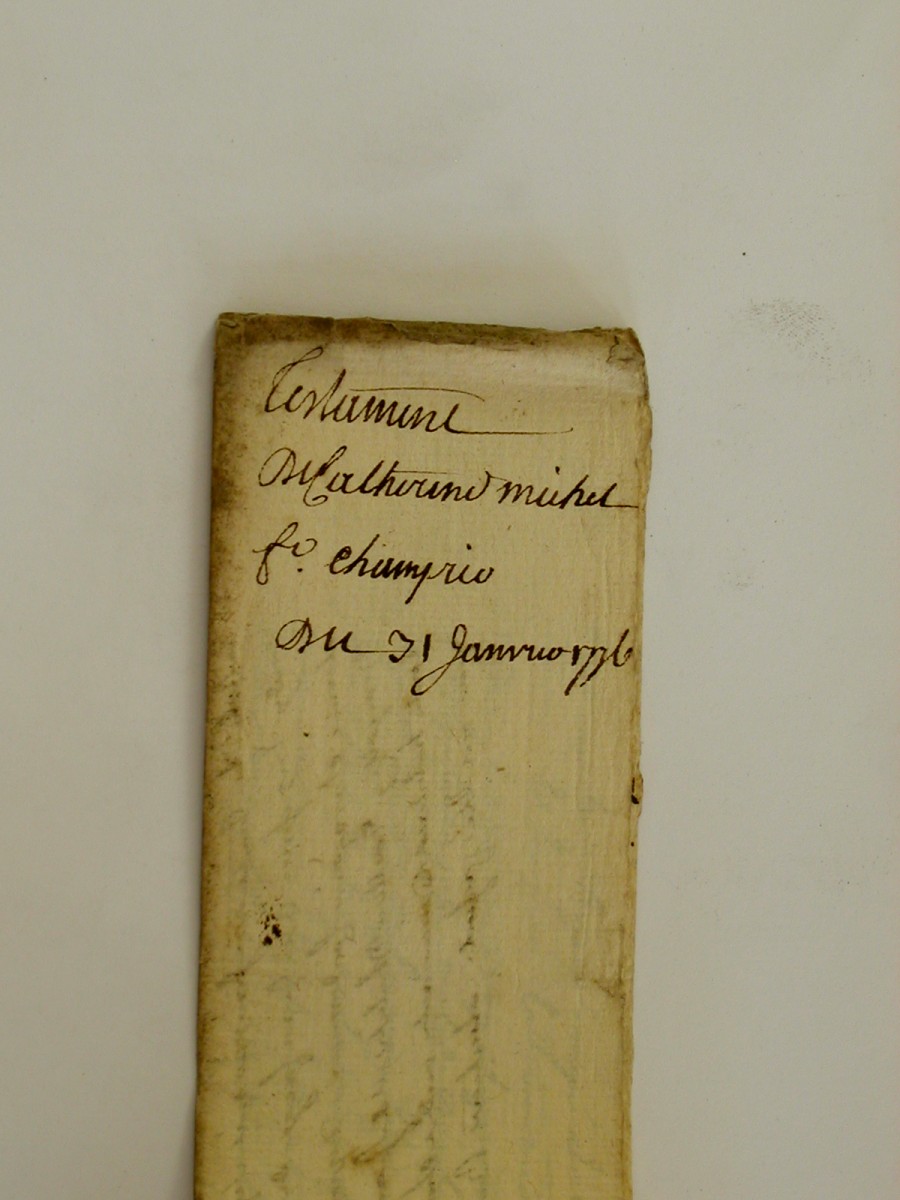 Testament
De Catherine michel
fe. Champrio
Du 31 Janvier 1776